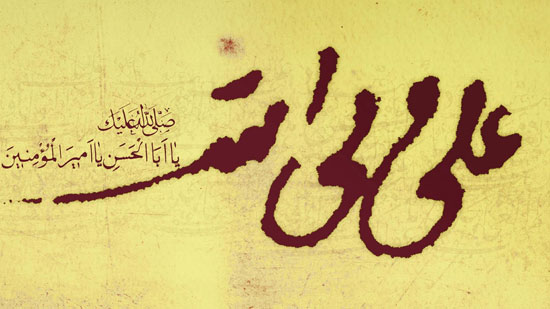 علی ولی الله
صلی الله علیک
یا ابا الحسن یا امیر المؤمنین